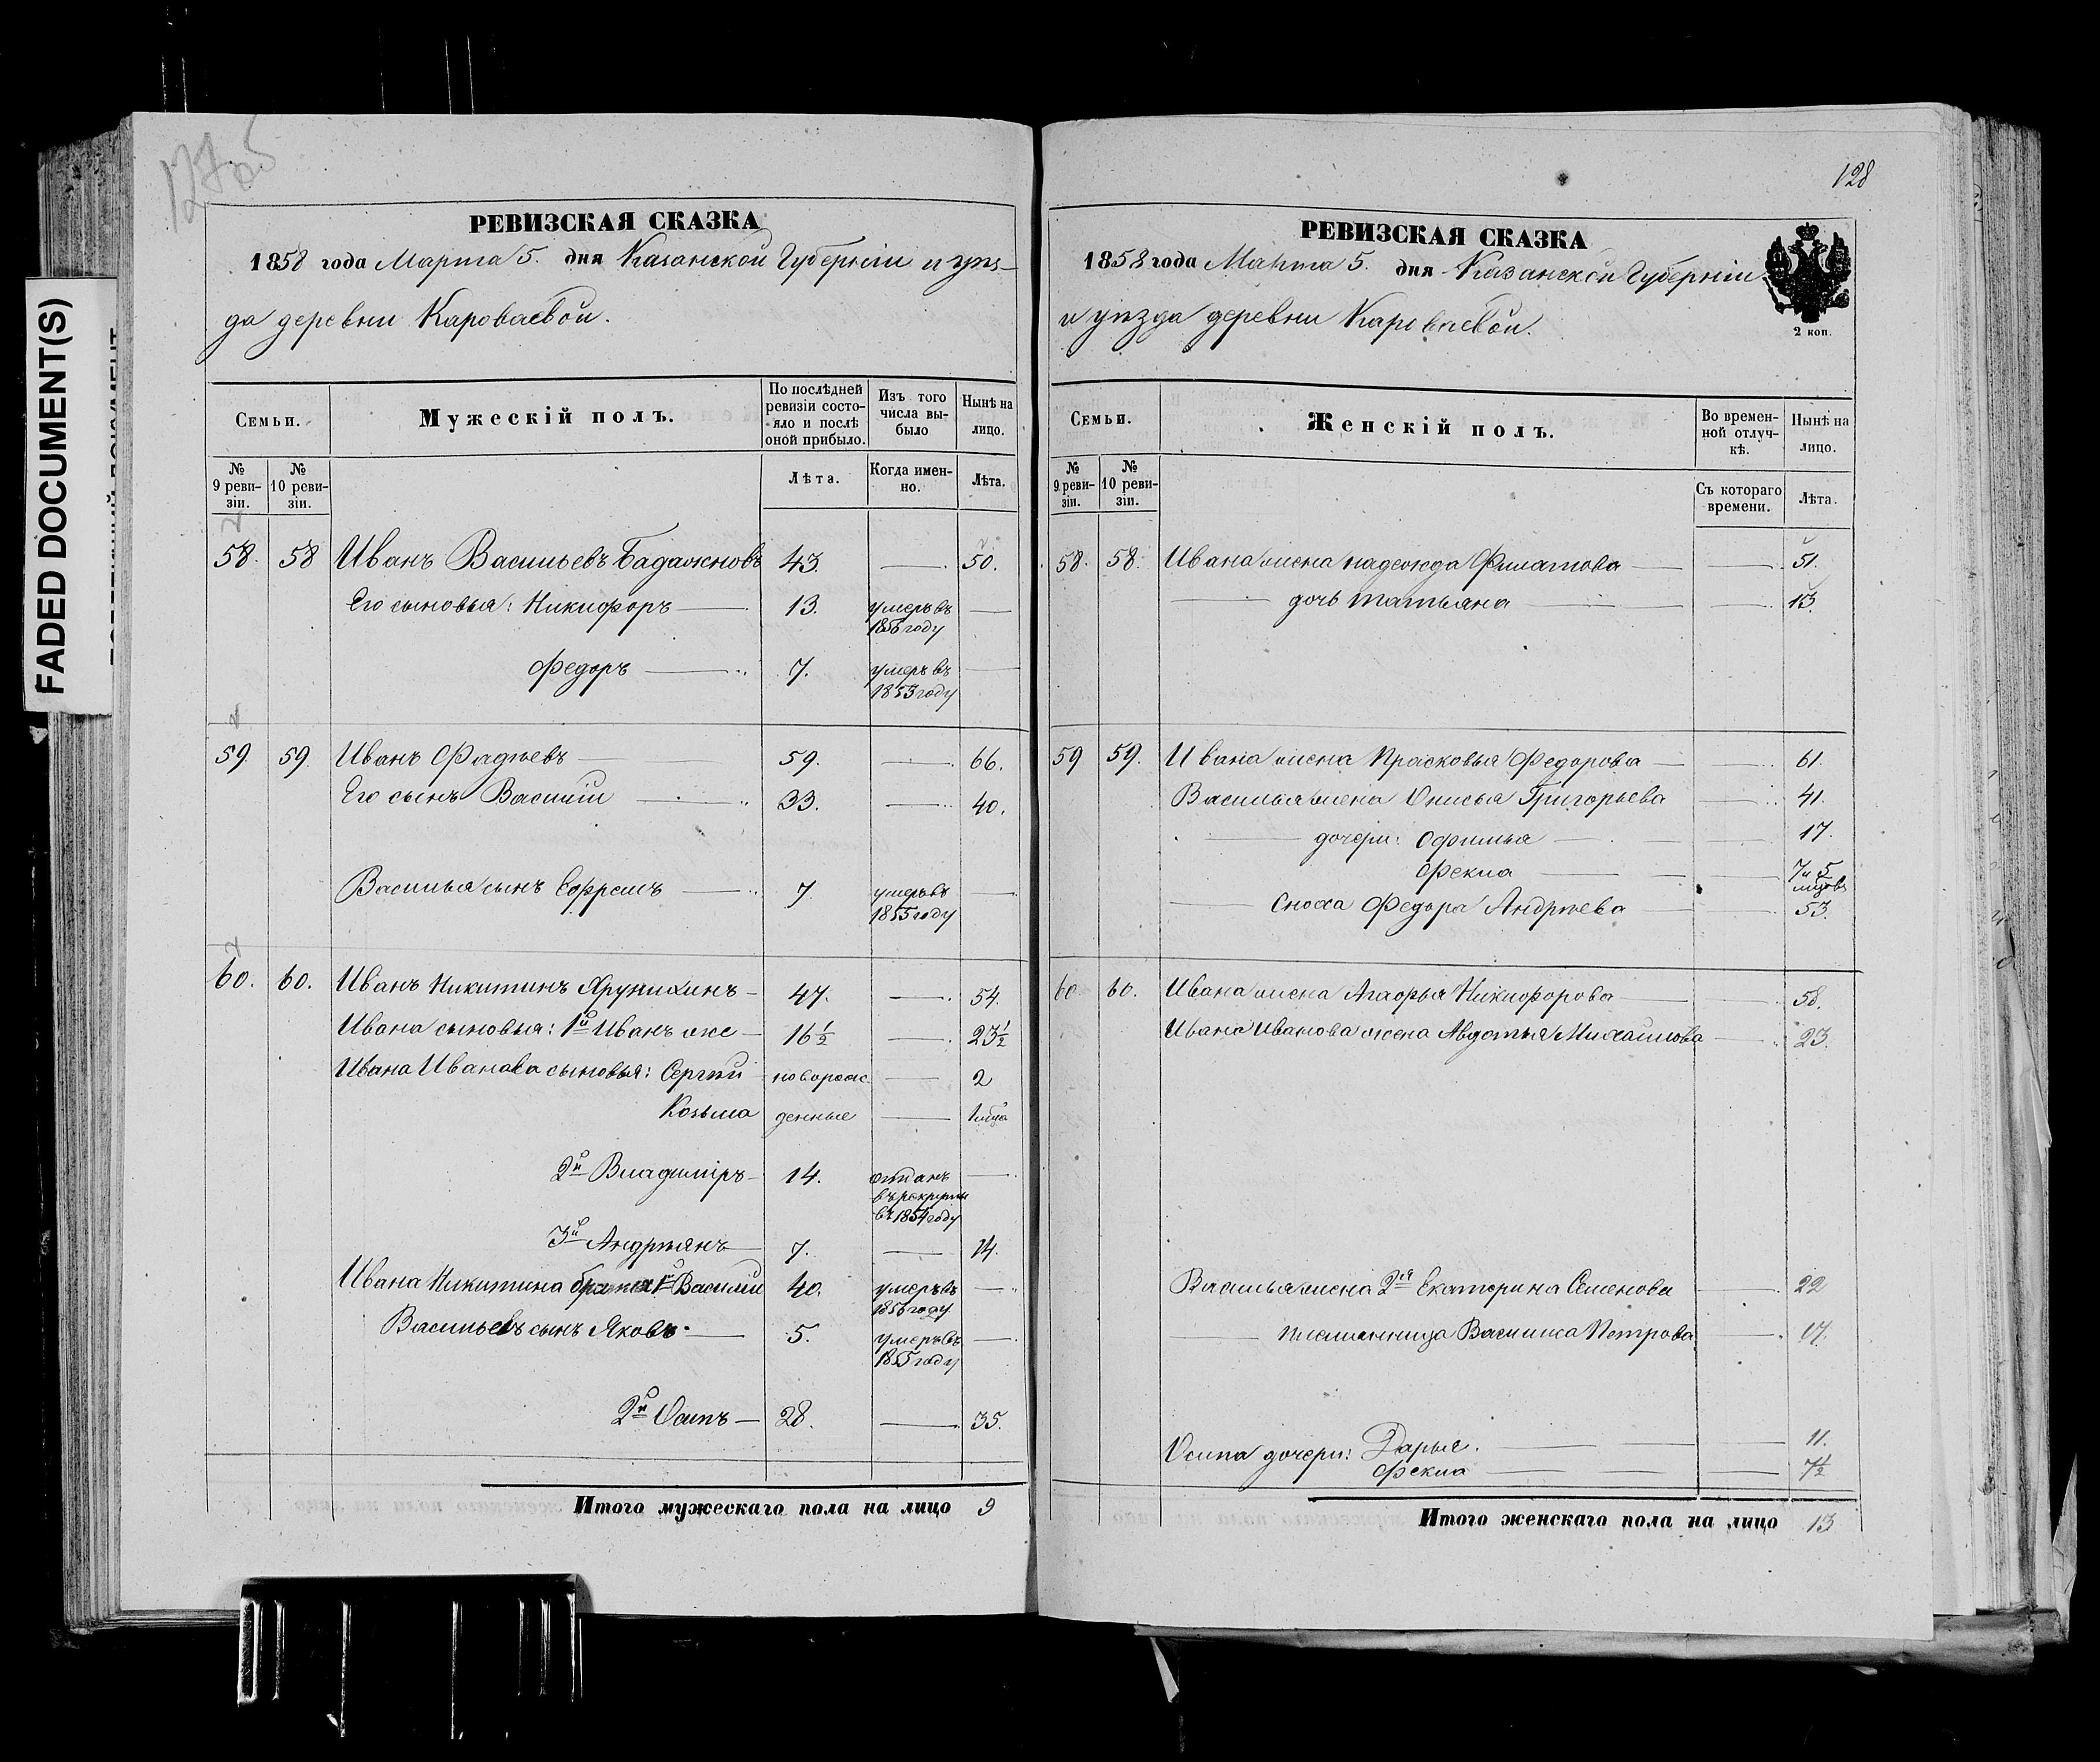 127об
РЕВИЗСКАЯ СКАЗКА
1858 года Марта 5. дня Казанской Губерніи и уѣз-
да деревни Караваевой.
Семьи. Мужескій полъ. По послѣдней ревизіи состояло и послѣ оной прибыло. Изъ того числа выбыло Нынѣ на лицо.
№ 9 ревизіи. № 10 ревизіи. Лѣта. Когда именно. Лѣта.
58. 58 Иванъ Васильевъ 43 50.
Его сыновья: Никифоръ 13. умеръ въ
1856 году
Федоръ 7. умеръ въ
1853 году
59. 59. Иванъ Фадѣевъ 59. 66.
Его сынъ Василій 33. 40.
Василья сынъ Ефремъ 7 умеръ въ
1855 году
60. 60. Иванъ Никитинъ 47. 54.
Ивана сыновья: 1й Иванъ же 16½ 23½
Ивана Иванова сыновья: Сергѣй новорож- 2
Козьма денные
2й Владиміръ 14. отданъ
въ рекруты
въ 1854 году
3й Андреянъ 7. 14.
Ивана Никитина братья 1й Василій 40. умеръ въ
1856 году
Васильевъ сынъ Яковъ 5. умеръ въ
1855 году
2й Осипъ 28. 35.
Итого мужескаго пола на лицо 9
128
РЕВИЗСКАЯ СКАЗКА
1858 года Марта 5. дня Казанской Губерніи
и уѣзда деревни Караваевой.
2 коп.
Семьи. Женскій полъ. Во временной отлучкѣ. Нынѣ на лицо.
№ 9 ревизіи. № 10 ревизіи. Съ котораго времени. Лѣта.
58. 58. Ивана жена Надежда Филатова 51.
дочь Татьяна 13.
59 59. Ивана жена Прасковья Федорова 61.
Василья жена Онисья Григорьева 41.
дочери: Офимья 17.
Фекла 7 и 5
мѣсяцовъ
Сноха Федора Андрѣева 53.
60. 60. Ивана жена Агафья Никифорова 58.
Ивана Иванова жена Авдотья Михайлова 23.
Василья жена 2я Екатерина Семенова 22
племянница Василиса Петрова 17.
Осипа дочери: Дарья. 11.
Фекла 7½
Итого женскаго пола на лицо 13
FADED DOCUMENT(S)